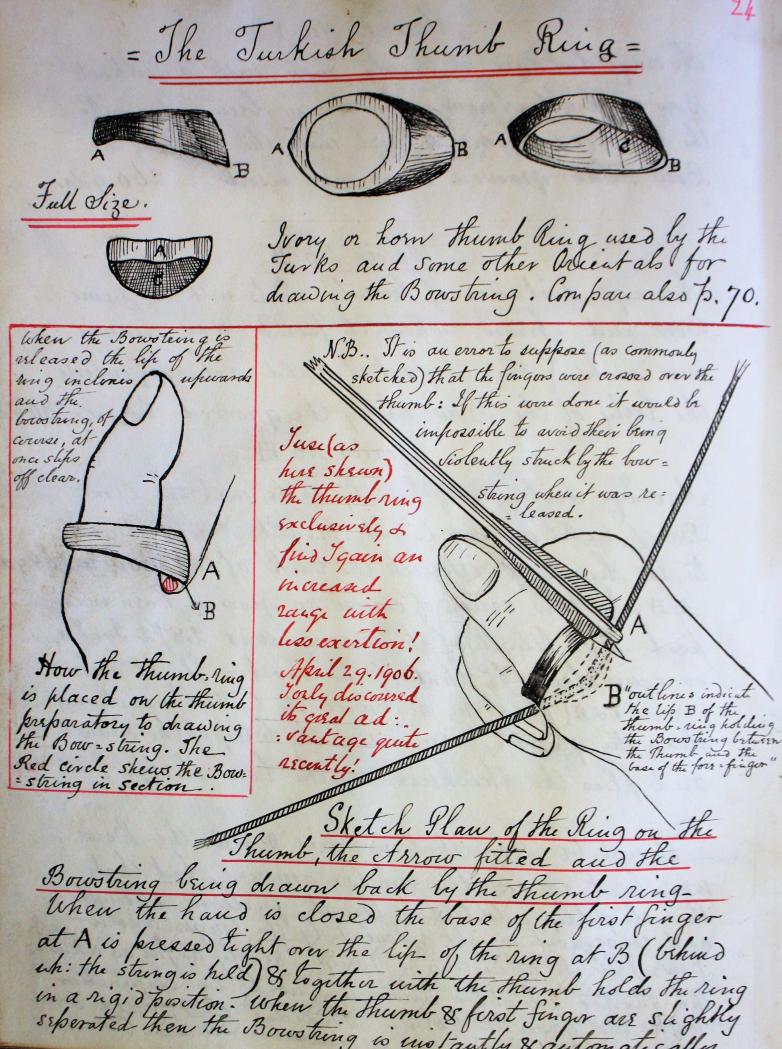 24
= The Turkish Thumb Ring =
A
B
A
B
A
C
B
Full Size.
A
C
Ivory or horn thumb Ring used by the
Turks and some other Orientals for
drawing the Bowstring. Compare also p. 70.
When the Bowstring is
released the lip of the
ring inclines upwards
and the
bowstring, of
course, at
once slips
off clear.
A
B
How the thumb-ring
is placed on the thumb
preparatory to drawing
the Bow=string. The
Red circle shews the Bow=
=string in section.
N.B.. It is an error to suppose (as commonly
sketched) that the fingers were crossed over the
thumb: If this were done it would be
impossible to avoid their being
violently struck by the bow=
string when it was re=
=leased.
I use (as
here shewn)
the thumb ring
exclusively &
find I gain an
increased
range with
less exertion!
April 29. 1906.
I only discovered
its great ad:
:vantage quite
recently!
A
B
"outlines indicate
the lip B of the
thumb-ring holding
the Bowstring between
the Thumb and the
base of the fore-finger"
Sketch Plan of the Ring on the
Thumb, the Arrow fitted and the
Bowstring being drawn back by the thumb ring-
When the hand is closed the base of the first finger
at A is pressed tight over the lip of the ring at B (behind
wh: the string is held) & together with the thumb holds the ring
in a rigid position. When the thumb & first finger are slightly
seperated then the Bowstring is instantly & automatically